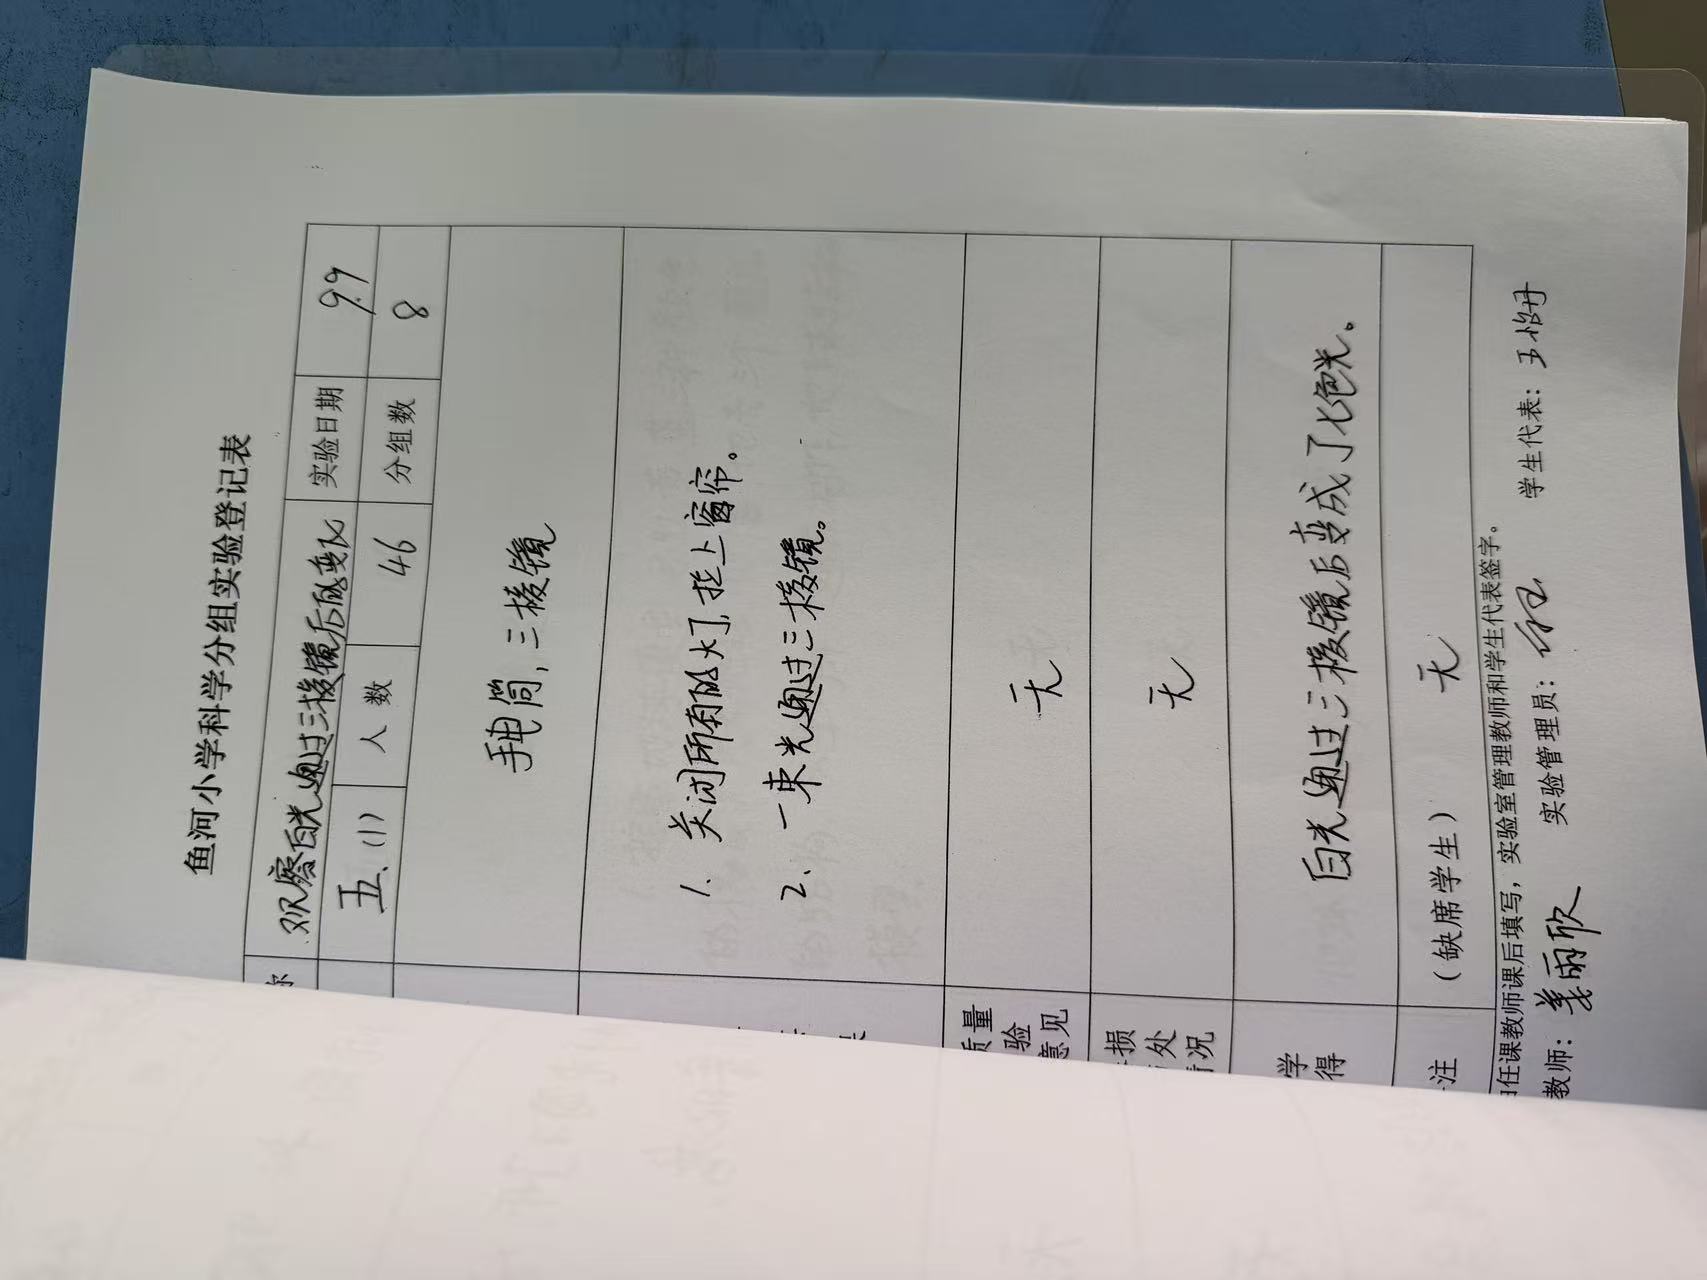 鱼河小学科学分组实验登记表
称 观察白光通过三棱镜后的变化 实验日期 9.9
五.(1) 人数 46 分组数 8
手电筒,三棱镜
1. 关闭所有的灯,拉上窗帘。
2、一束光通过三棱镜。
质量
验 无
意见
损
处 无
情况
学 白光通过三棱镜后变成了七色光。
得
注 (缺席学生) 无
任课教师课后填写,实验室管理教师和学生代表签字。
教师: 姜丽欣 实验管理员: 学生代表: 王怡丹